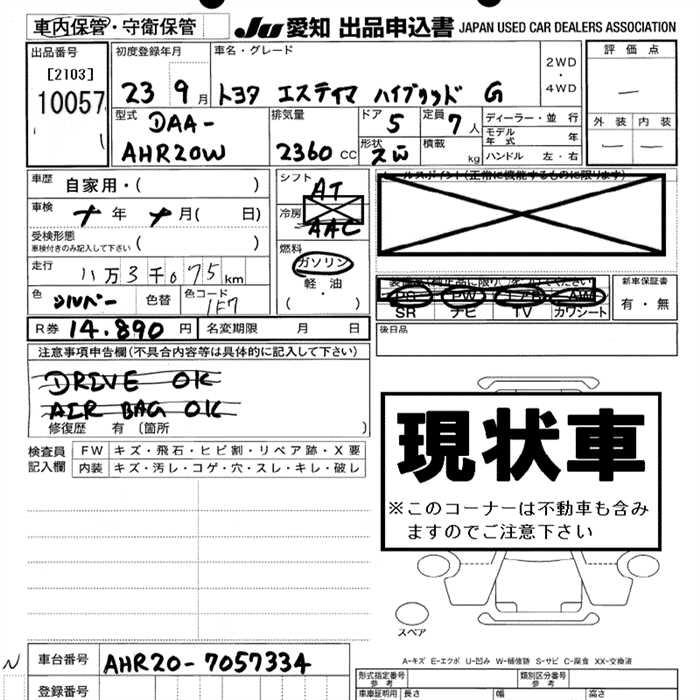 車内保管・守衛保管
JU 愛知 出品申込書 JAPAN USED CAR DEALERS ASSOCIATION
出品番号
[2103]
10057
初度登録年月
23 9月
車名・グレード
トヨタ エスティマ ハイブリッド G
2WD
・
4WD
評価点
—
外装 内装
— —
型式
DAA-
AHR20W
排気量
2360 CC
ドア
5
定員
7人
形状
積載
kg
ディーラー・並行
モデル年式 年
ハンドル 左・右
車歴 自家用・( )
車検 年 月( 日)
受検形態
車検付きのみ記入して下さい ( )
走行 八万3千075km
色 シルバー 色替 色コード 1F7
R券 14.890円 名変期限 月 日
シフト
AT
冷房
AAC
燃料
ガソリン
軽油
( ・ )
セールスポイント(正常に機能するものに限ります)
PS PW エアB AW
SR ナビ TV カワシート
新車保証書
有・無
後日品
注意事項申告欄(不具合内容等は具体的に記入して下さい)
DRIVE OK
AIR BAG OK
修復歴 有 〔箇所 〕
検査員記入欄
FW キズ・飛石・ヒビ割・リペア跡・X要
内装 キズ・汚レ・コゲ・穴・スレ・キレ・破レ
現状車
※このコーナーは不動車も含み
ますのでご注意下さい
スペア
A-キズ E-エクボ U-凹み W-補修跡 S-サビ C-腐食 XX-交換済
N
車台番号 AHR20-7057334
登録番号
形式指定番号 参考
類別区分番号 参考
車庫証明用 参考 長さ 幅 高さ